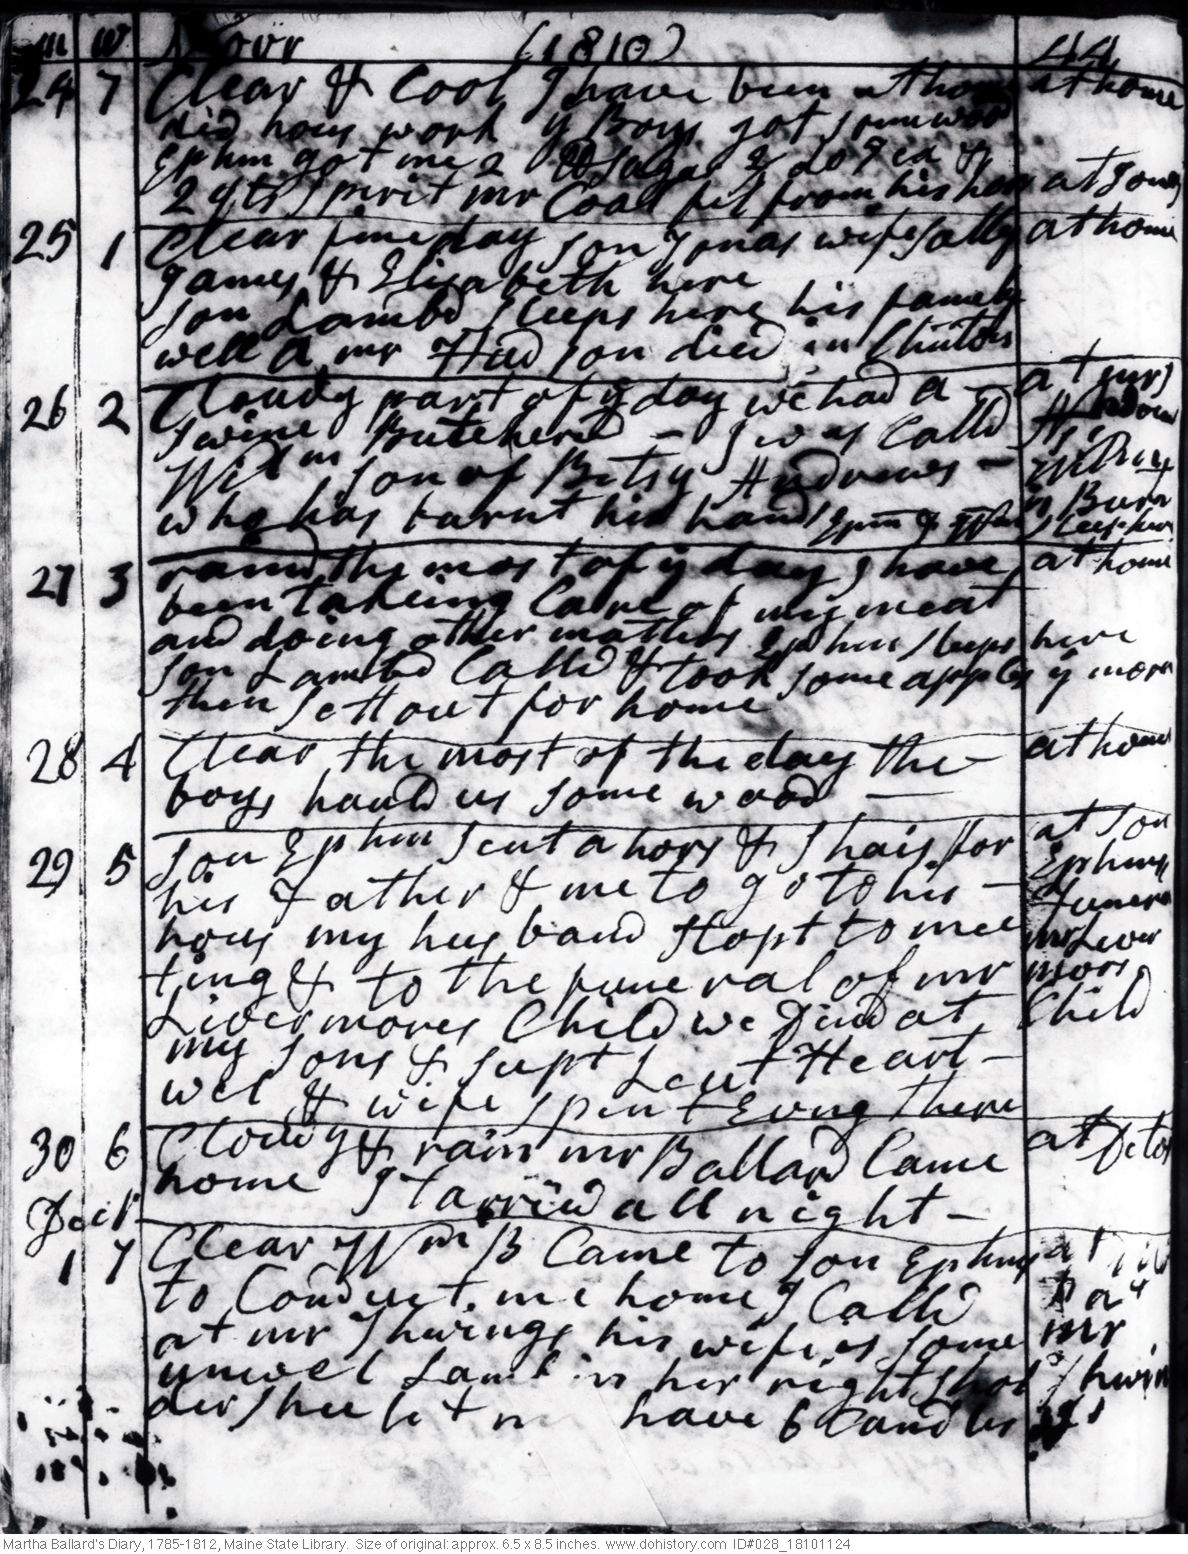 m w Novr (1810) 44
24 7 Clear & Cool I have been at home at home
did hous work y Boys got some wood
Ephm got me 2 lb Sugar & do Tea &
2 qts Spirit mr Coal fel from his hors at Sons
25 1 Clear fine day son Jonas wife Sally at home
James & Elisabeth here
Son Lambd sleeps here his famely
well a mr Had son died in Clinton
26 2 Cloudy part of y day we had a - at mrs
Swine Butcherd - I was Calld Andrews
Wm son of Betsy Andrews -
who has burnt his hand Ephm & wife Burn
sleep here
27 3 raind the most of y day I have at home
been takeing Care of my meat
and doing other matters Ephm sleeps here
Son Lambd Calld & took some apples y morn
then sett out for home
28 4 Clear the most of the day the - at home
boys hauld us some wood
29 5 Son Ephm sent a hors & Shais for at son
his Father & me to go to his - Ephms
hous my husband stopt to mee Funera
ting & to the funeral of mr mr Liver
Livermores Child we Dind at mors
my sons & supt Leut Heart - Child
wel & wife spent Evng there
30 6 Clowdy & rain mr Ballard Came at Ditos
home I tarried all night -
Decr
1 7 Clear Wm B Came to son Ephms at
to Conduct me home I Calld
at mr Thwings his wife is some mr
unwel Lame in her right shol Thwin
der shee let me have 6 Candles